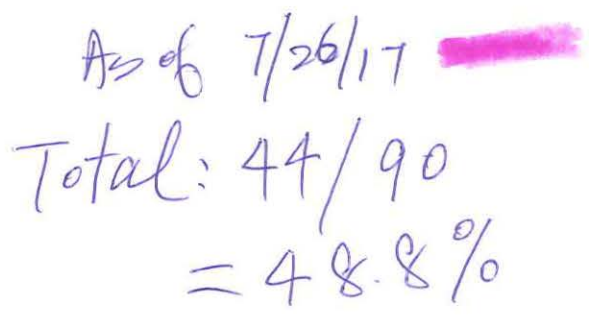 As of 7/26/17
Total: 44/90
= 48.8%